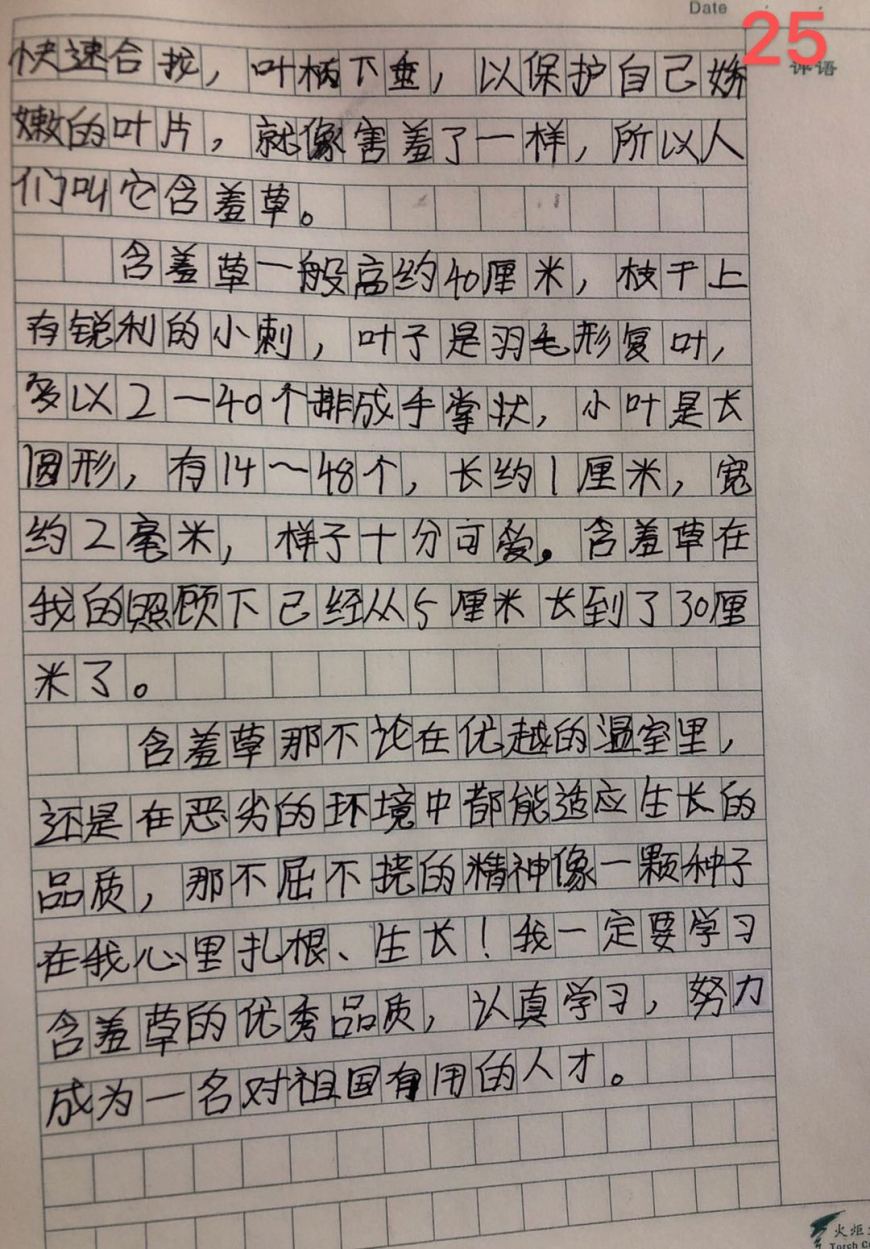 Date
25
评语
快速合拢，叶柄下垂，以保护自己娇
嫩的叶片，就像害羞了一样，所以人
们叫它含羞草。
含羞草一般高约40厘米，枝干上
有锐利的小刺，叶子是羽毛形复叶，
多以2一40个排成手掌状，小叶是长
圆形，有14～48个，长约1厘米，宽
约2毫米，样子十分可爱。含羞草在
我的照顾下已经从5厘米长到了30厘
米了。
含羞草那不论在优越的温室里，
还是在恶劣的环境中都能适应生长的
品质，那不屈不挠的精神像一颗种子
在我心里扎根、生长！我一定要学习
含羞草的优秀品质，认真学习，努力
成为一名对祖国有用的人才。
火炬
Torch